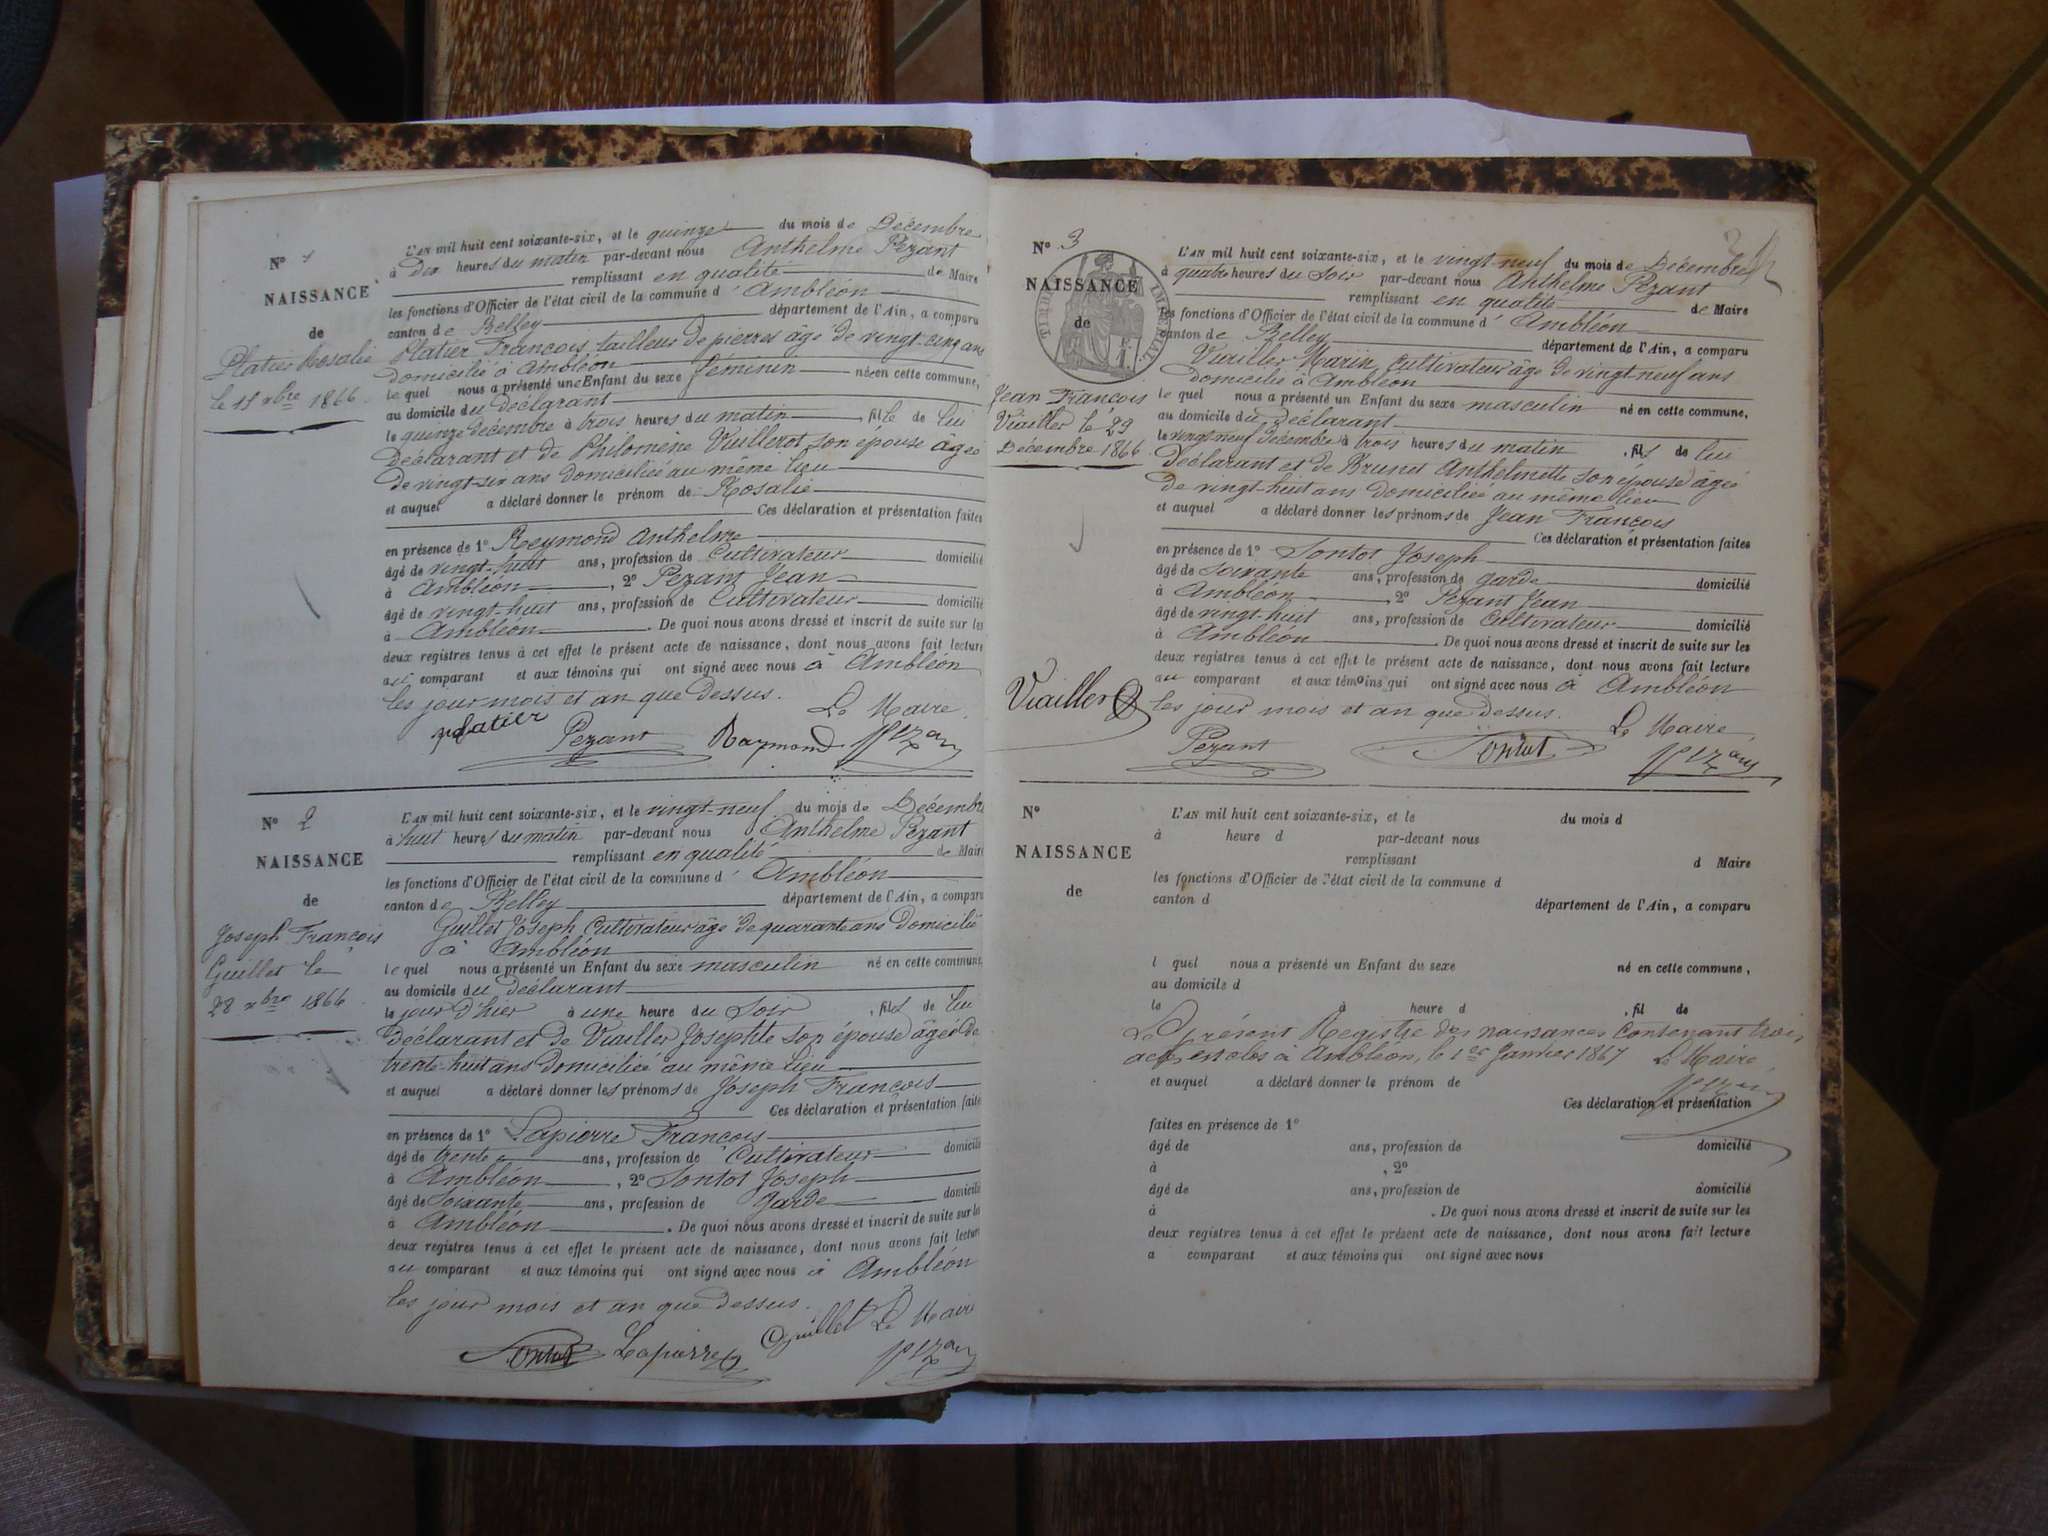 N° 1
NAISSANCE
de
Platier Rosalie
le 15 xbre 1866
L'AN mil huit cent soixante-six, et le quinze du mois de Décembre
à dix heures du matin par-devant nous Anthelme Pezant
remplissant en qualité de Maire
les fonctions d'Officier de l'état civil de la commune d'Ambléon
canton de Belley département de l'Ain, a comparu
Platier François tailleur de pierres âgé de vingt-cinq ans
domicilié à Ambléon
le quel nous a présenté une Enfant du sexe féminin née en cette commune,
au domicile du déclarant
le quinze décembre à trois heures du matin, fille de lui
déclarant et de Philomène Vuillerot son épouse âgée
de vingt-six ans domiciliée au même lieu
et auquel a déclaré donner le prénom de Rosalie
Ces déclaration et présentation faites
en présence de 1° Reymond Anthelme
âgé de vingt-huit ans, profession de Cultivateur domicilié
à Ambléon, 2° Pezant Jean
âgé de vingt-huit ans, profession de Cultivateur domicilié
à Ambléon. De quoi nous avons dressé et inscrit de suite sur les
deux registres tenus à cet effet le présent acte de naissance, dont nous avons fait lecture
au comparant et aux témoins qui ont signé avec nous à Ambléon
les jour mois et an que dessus. Le Maire
platier Pezant Raymond Pezant
N° 2
NAISSANCE
de
Joseph François
Guillet le
28 xbre 1866
L'AN mil huit cent soixante-six, et le vingt-neuf du mois de Décembre
à huit heures du matin par-devant nous Anthelme Pezant
remplissant en qualité de Maire
les fonctions d'Officier de l'état civil de la commune d'Ambléon
canton de Belley département de l'Ain, a comparu
Guillet Joseph Cultivateur âgé de quarante ans domicilié
à Ambléon
le quel nous a présenté un Enfant du sexe masculin né en cette commune,
au domicile du déclarant
le jour d'hier à une heure du Soir, fils de lui
déclarant et de Viailler Josephte son épouse âgée de
trente-huit ans domiciliée au même lieu
et auquel a déclaré donner les prénoms de Joseph François
Ces déclaration et présentation faites
en présence de 1° Lapierre François
âgé de trente ans, profession de Cultivateur domicilié
à Ambléon, 2° Sontot Joseph
âgé de Soixante ans, profession de garde domicilié
à Ambléon. De quoi nous avons dressé et inscrit de suite sur les
deux registres tenus à cet effet le présent acte de naissance, dont nous avons fait lecture
au comparant et aux témoins qui ont signé avec nous à Ambléon
les jour mois et an que dessus.
Sontot Lapierre Guillet Le Maire
Pezant
2
N° 3
NAISSANCE
de
TIMBRE IMPERIAL
Jean François
Viailler le 29
Décembre 1866
L'AN mil huit cent soixante-six, et le vingt-neuf du mois de Décembre
à quatre heures du Soir par-devant nous Anthelme Pezant
remplissant en qualité de Maire
les fonctions d'Officier de l'état civil de la commune d'Ambléon
canton de Belley département de l'Ain, a comparu
Viailler Marin Cultivateur âgé de vingt-neuf ans
domicilié à Ambléon
le quel nous a présenté un Enfant du sexe masculin né en cette commune,
au domicile du déclarant
le vingt-neuf décembre à trois heures du matin, fils de lui
déclarant et de Brunet Anthelmette son épouse âgée
de vingt-huit ans domiciliée au même lieu
et auquel a déclaré donner les prénoms de Jean François
Ces déclaration et présentation faites
en présence de 1° Sontot Joseph
âgé de soixante ans, profession de garde domicilié
à Ambléon, 2° Pezant Jean
âgé de vingt-huit ans, profession de Cultivateur domicilié
à Ambléon. De quoi nous avons dressé et inscrit de suite sur les
deux registres tenus à cet effet le présent acte de naissance, dont nous avons fait lecture
au comparant et aux témoins qui ont signé avec nous à Ambléon
Viailler les jour mois et an que dessus. Le Maire,
Pezant Sontot Pezant
N°
NAISSANCE
de
L'AN mil huit cent soixante-six, et le du mois d
à heure d par-devant nous
remplissant d Maire
les fonctions d'Officier de l'état civil de la commune d
canton d département de l'Ain, a comparu
l quel nous a présenté un Enfant du sexe né en cette commune,
au domicile d
le à heure d, fil de
Le présent Registre des naissances Contenant trois
actes est clos à Ambléon, le 1er Janvier 1867 Le Maire,
Pezant
et auquel a déclaré donner le prénom de
Ces déclaration et présentation
faites en présence de 1°
âgé de ans, profession de domicilié
à , 2°
âgé de ans, profession de domicilié
à . De quoi nous avons dressé et inscrit de suite sur les
deux registres tenus à cet effet le présent acte de naissance, dont nous avons fait lecture
a comparant et aux témoins qui ont signé avec nous